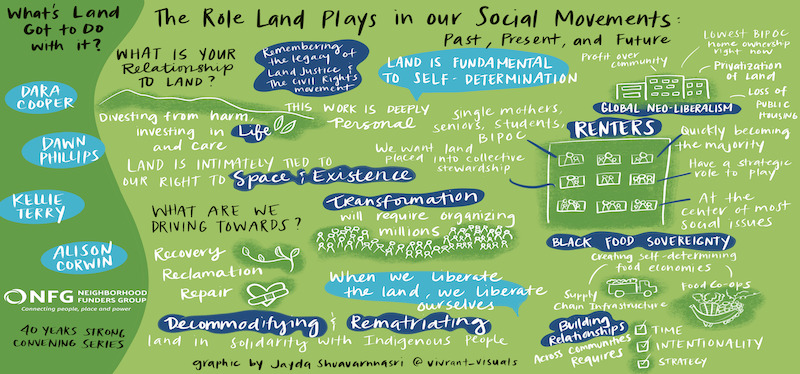 What's Land
Got to Do
with it?
DARA
COOPER
DAWN
PHILLIPS
KELLIE
TERRY
ALISON
CORWIN
NFG
NEIGHBORHOOD
FUNDERS GROUP
Connecting people, place and power
40 YEARS STRONG
CONVENING SERIES
The Role Land Plays in our Social Movements:
Past, Present, and Future
WHAT IS YOUR
Relationship
TO LAND?
Remembering
the legacy of
Land Justice &
The Civil Rights
movement
LAND IS FUNDAMENTAL
TO SELF-DETERMINATION
Divesting from harm,
investing in Life
and care
THIS WORK IS DEEPLY
Personal
LAND IS INTIMATELY TIED TO
OUR RIGHT TO Space & Existence
We want land
placed into collective
stewardship
single mothers,
seniors, students,
BIPOC
Profit over
community
LOWEST BIPOC
home ownership
right now
Privatization
of Land
Loss of
PUBLIC
HOUSING
GLOBAL NEO-LIBERALISM
RENTERS
Quickly becoming
the majority
Have a strategic
role to play
At the
center of most
social issues
WHAT ARE WE
DRIVING TOWARDS?
Recovery
Reclamation
Repair
Transformation
will require organizing
millions
When we liberate
the land, we liberate
ourselves
Decommodifying & Rematriating
land in solidarity with Indigenous People
BLACK FOOD SOVEREIGNTY
Creating self-determining
food economies
Supply
Chain Infrastructure
Food Co-ops
Building
Relationships
Across Communities
Requires
TIME
INTENTIONALITY
STRATEGY
graphic by Jayda Shuavarnnasri @vivrant_visuals